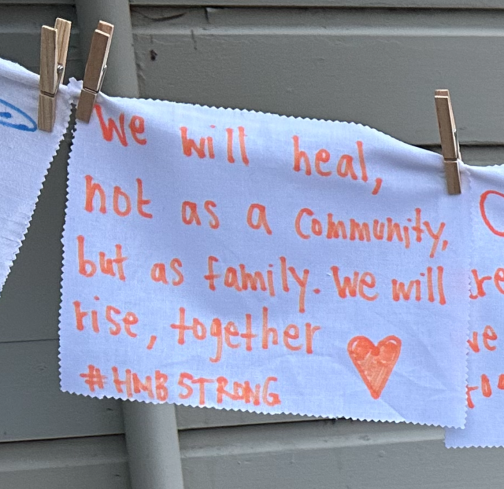 We will heal,
not as a community,
but as family. We will
rise, together
#HMBSTRONG